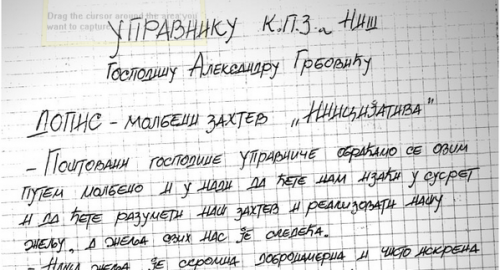 Drag the cursor around the area you
want to capture
УПРАВНИКУ К.П.З-а НИШ
Господину Александру Грбовићу
ДОПИС - МОЛБЕНИ ЗАХТЕВ „ИНИЦИЈАТИВА"
- Поштовани господине управниче обраћамо се овим
путем молбено и у нади да ћете нам изаћи у сусрет
и да ћете разумети наш захтев и реализовати нашу
жељу. А жеља свих нас је следећа.
- Наша жеља је скромна добронамерна и чисто искрена